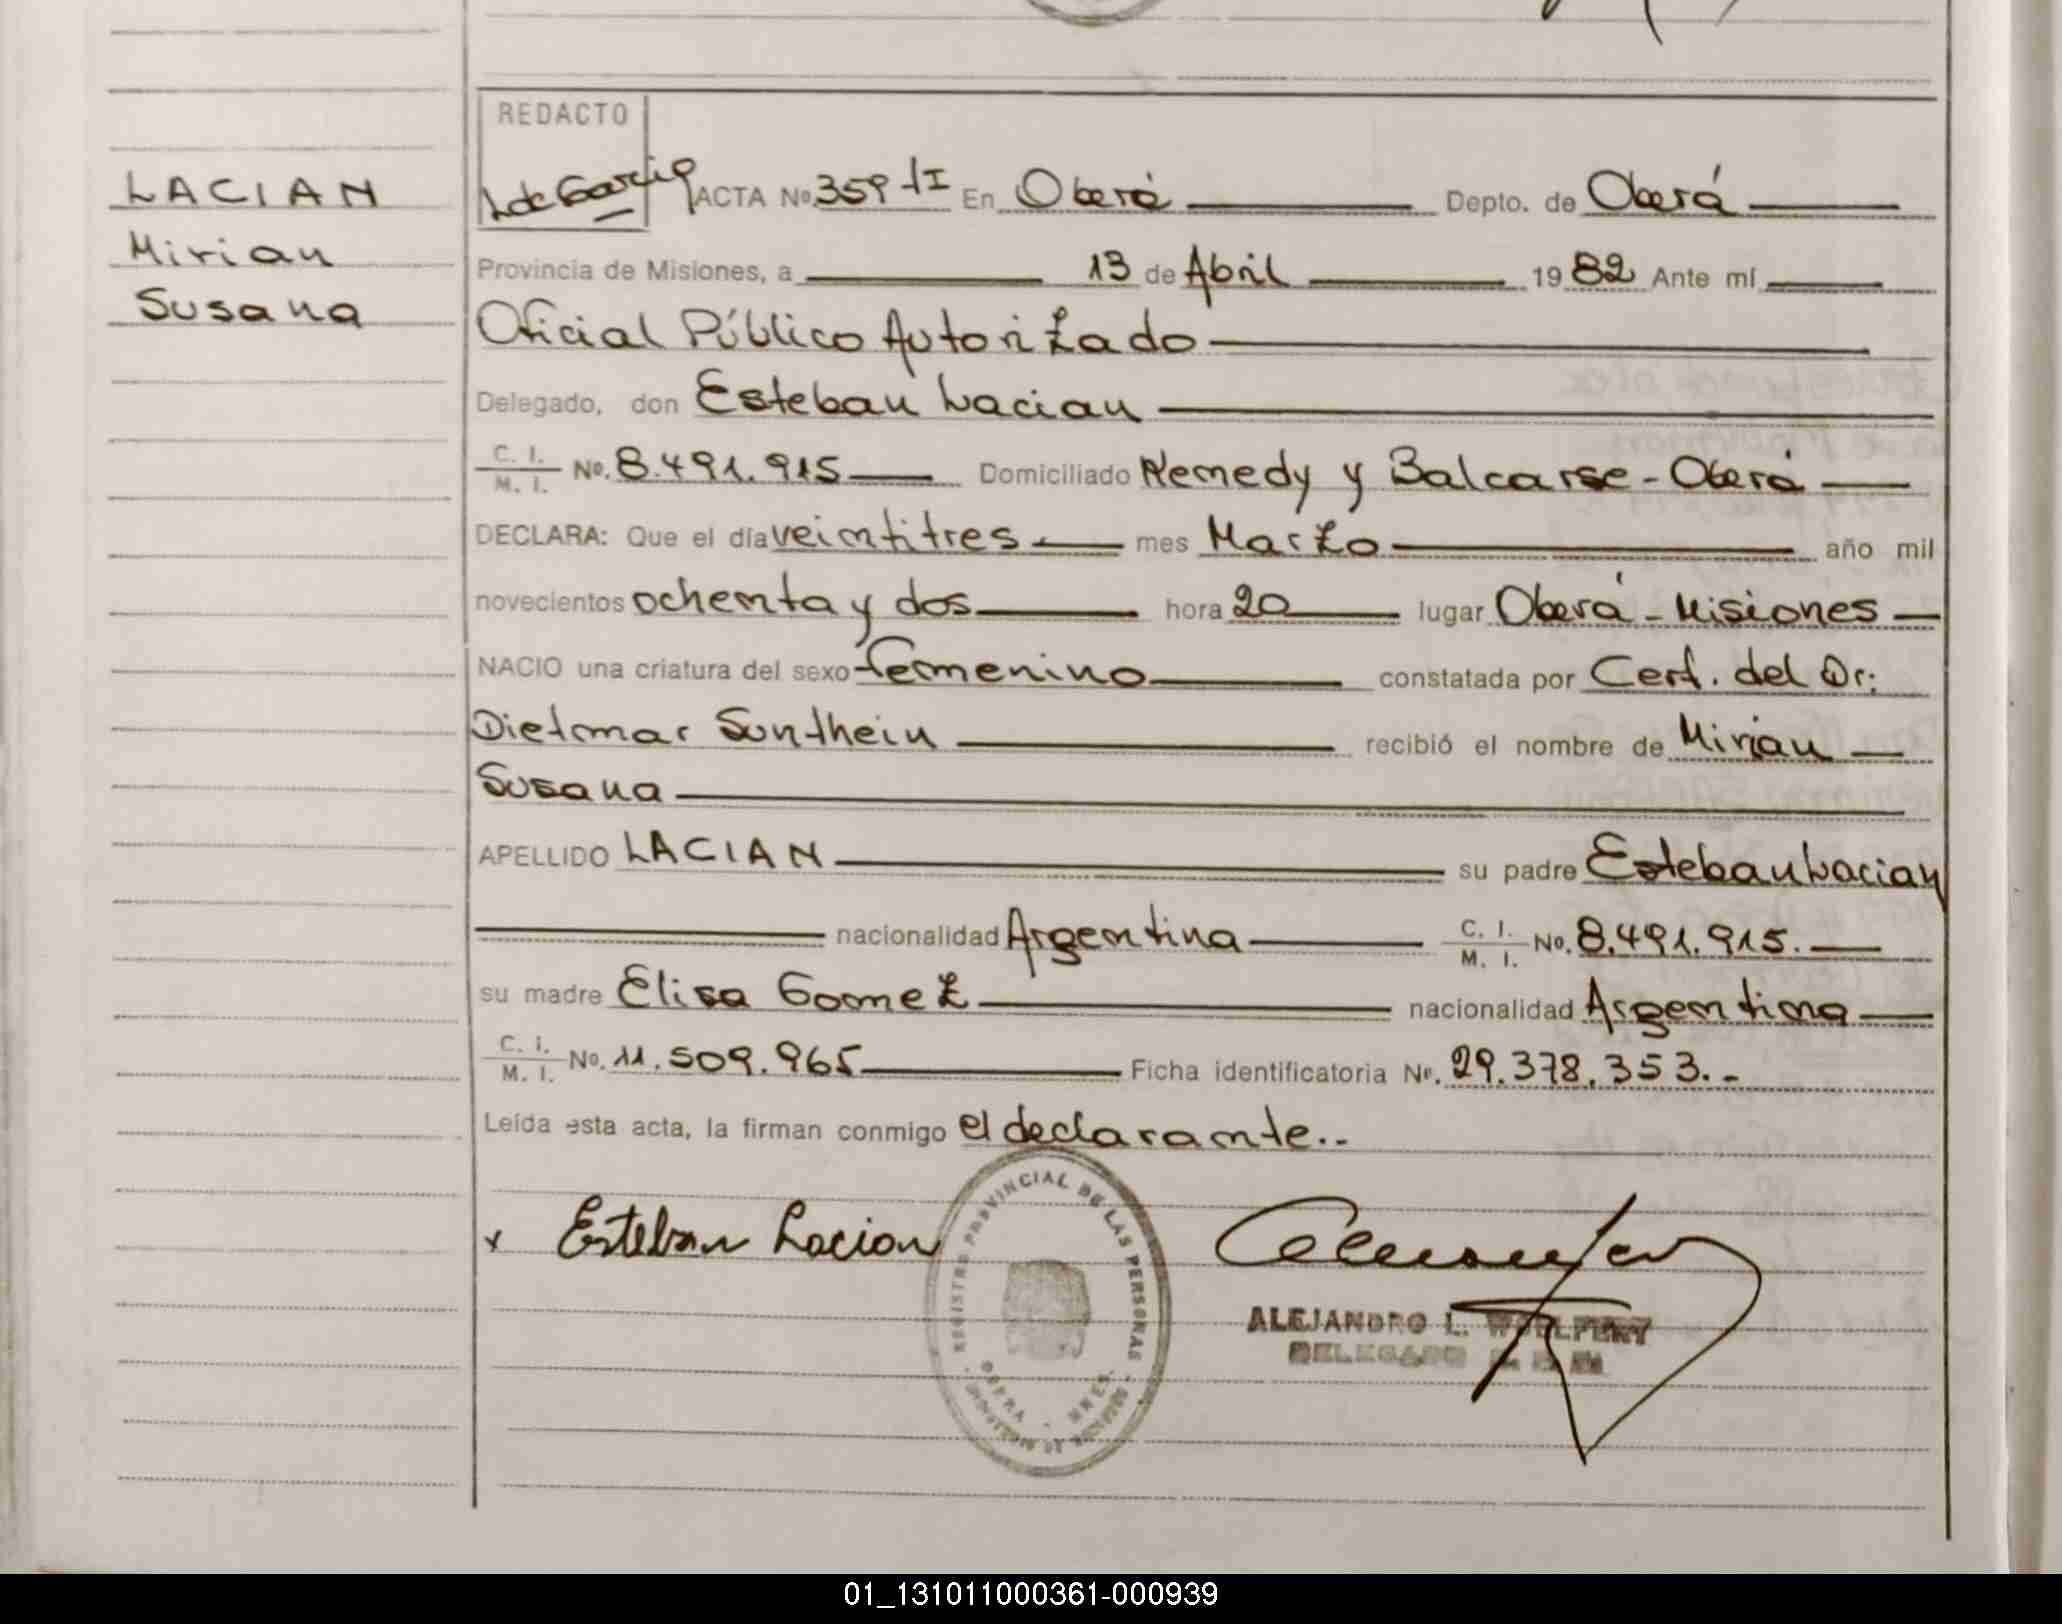 REDACTO
LACIAN
Mirian
Susana
L de Garcia ACTA No. 359 tI En Oberá Depto. de Oberá
Provincia de Misiones, a 13 de Abril 1982 Ante mí
Oficial Público Autorizado
Delegado, don Esteban Lacian
C. I. / M. I. No. 8.491.915 Domiciliado Kemedy y Balcarse - Oberá
DECLARA: Que el día veintitres mes Marzo año mil
novecientos ochenta y dos hora 20 lugar Oberá - Misiones
NACIO una criatura del sexo femenino constatada por Cert. del Dr:
Dietmar Sonthein recibió el nombre de Mirian
Susana
APELLIDO LACIAN su padre Esteban Lacian
nacionalidad Argentina C. I. / M. I. No. 8.491.915.
su madre Elisa Gomez nacionalidad Argentina
C. I. / M. I. No. 11.509.965 Ficha identificatoria No. 29.378.353.-
Leída esta acta, la firman conmigo el declarante..
x Esteban Lacian
REGISTRO PROVINCIAL DE LAS PERSONAS
ALEJANDRO L.
DELEGADO
01_131011000361-000939